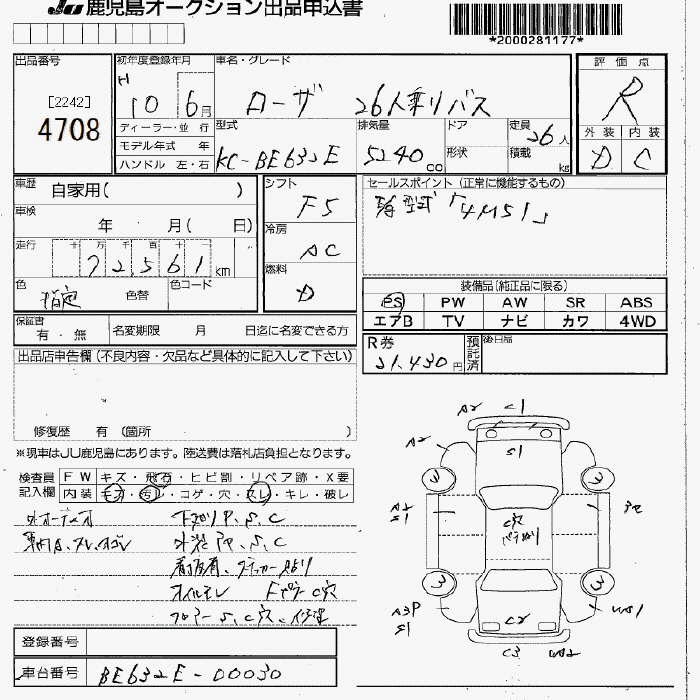 JU 鹿児島オークション出品申込書
*2000281177*
出品番号
[2242]
4708
初年度登録年月
H 10 6月
ディーラー・並 行
モデル年式 年
ハンドル 左・右
車名・グレード
ローザ 26人乗りバス
型式
KC-BE632E
排気量
5240 cc
ドア
形状
定員
26人
積載 kg
評価点
R
外装 内装
D C
車歴 自家用( )
車検
年 月( 日)
走行 十 万 千 百 十 一
72,561 km
色
指定 色替
色コード
シフト
F5
冷房
AC
燃料
D
セールスポイント (正常に機能するもの)
型式「4M51」
装備品(純正品に限る)
PS PW AW SR ABS
エアB TV ナビ カワ 4WD
保証書
有・無
名変期限 月 日迄に名変できる方
R券
21,430円
預託済
後日品
出品店申告欄(不良内容・欠品など具体的に記入して下さい)
修復歴 有 (箇所 )
※現車はJU鹿児島にあります。陸送費は落札店負担となります。
検査員記入欄
FW キズ・飛石・ヒビ割・リペア跡・X要
内装 キズ・汚レ・コゲ・穴・スレ・キレ・破レ
外オーディオ 下廻りP、S、C
外装 P、S、C
オイルモレ Fピラー C穴
フロアー S、C穴、修理
登録番号
車台番号 BE632E-00030
A2 C1
A2 S1
3 3
A2
S1
C穴
3 3
A3P
S1
C2
W1
C3 W2